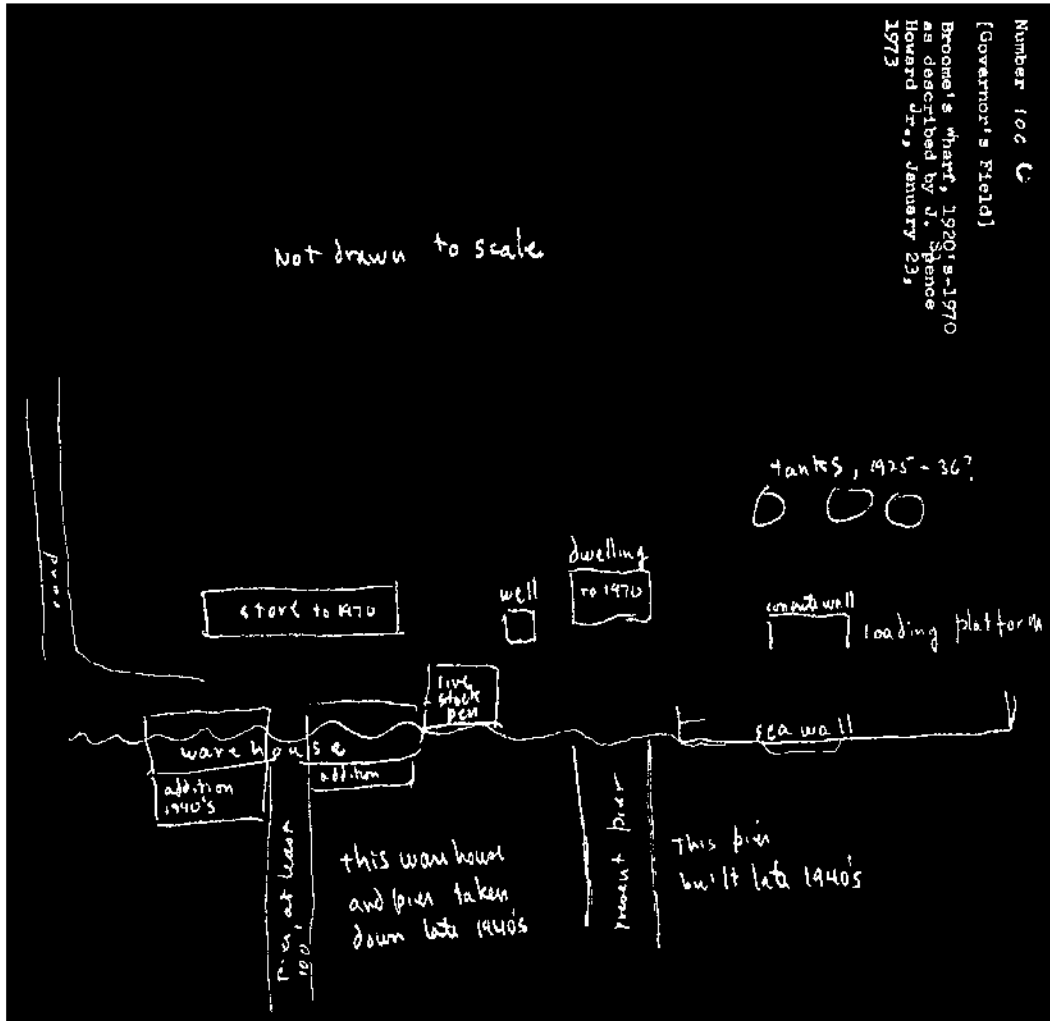 Number 106 C
[Governor's Field]
Broome's wharf, 1920's-1970
as described by J. Spence
Howard Jr., January 23,
1973
Not drawn to scale
tanks, 1925-36?
road
dwelling
to 1970
well
store to 1970
concrete wall
loading platform
live
stock
pen
warehouse
sea wall
addition
1940's
addition
pier, at least
100'
this warehouse
and pier taken
down late 1940's
present pier
This pier
built late 1940's